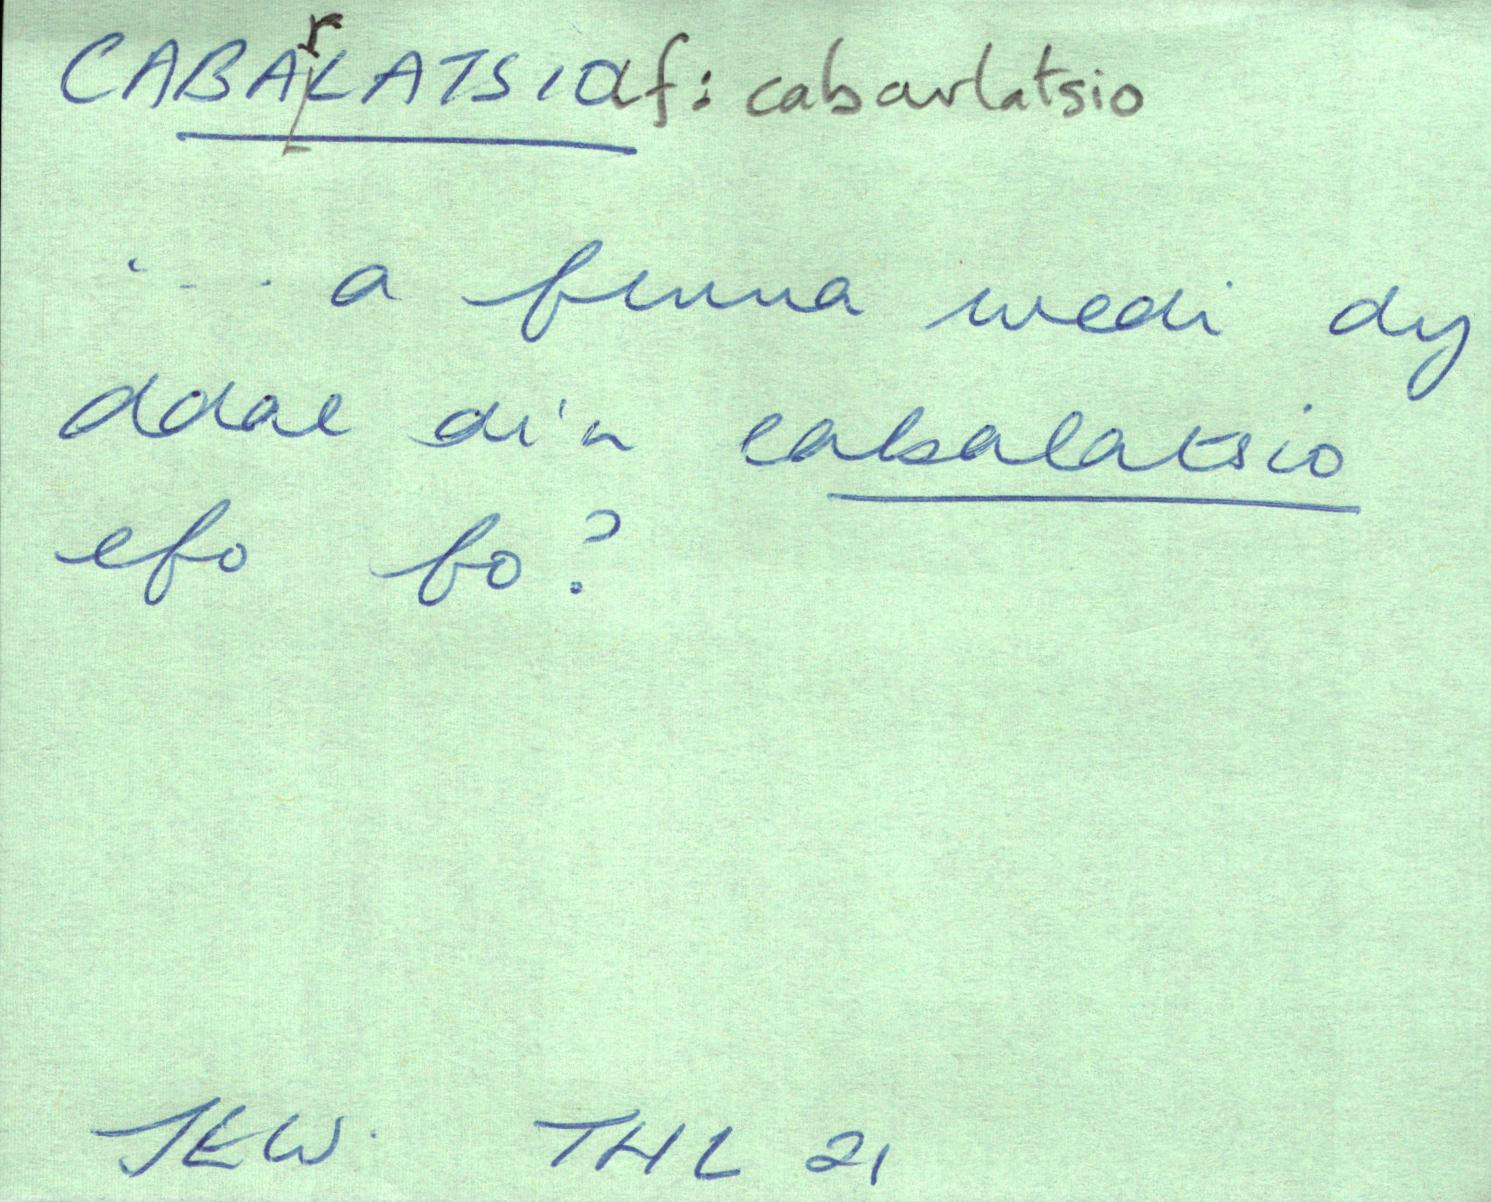 CABArLATSIOaf: cabarlatsio
... a finna wedi dy
ddal di'n cabalatsio
efo fo?
JEW. THL 21